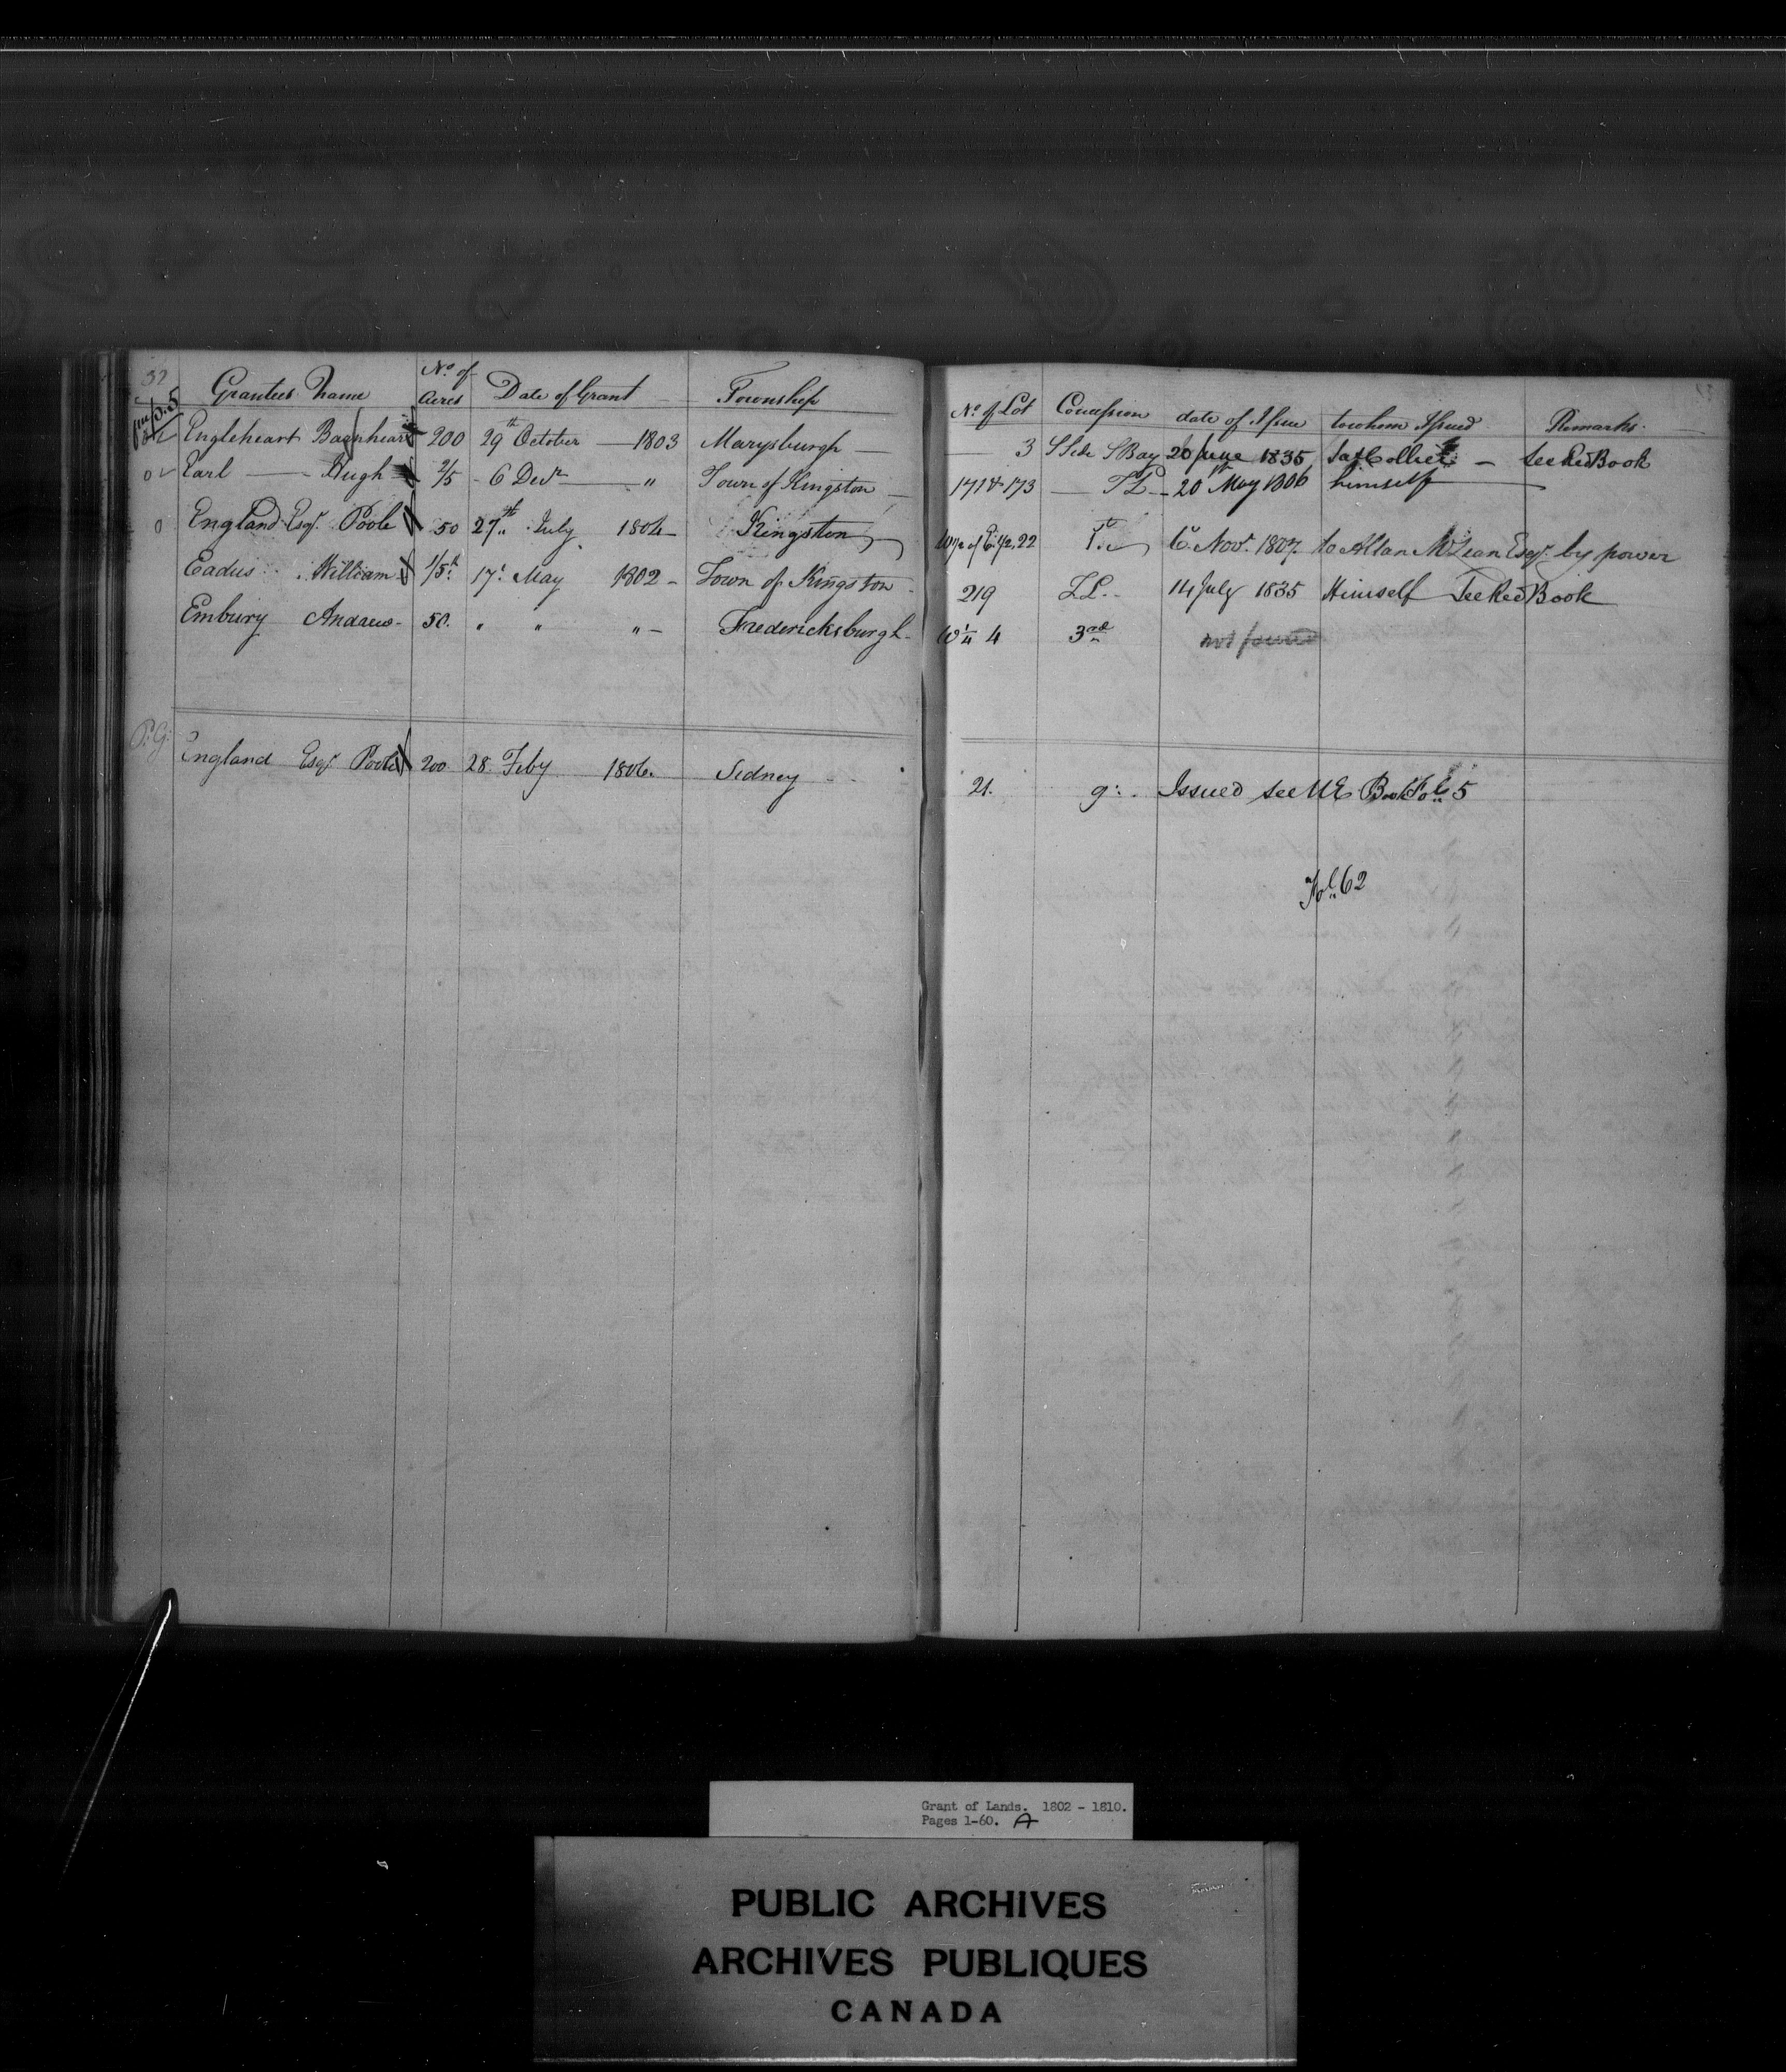 32
Grantees Name No. of Acres Date of Grant Township No. of Lot Concession date of Issue to whom Issued Remarks
Engleheart 200 29th October — 1803 Marysburgh — 3 S Side S Bay 20 June 1835 — See Red Book
Earl — Hugh 2/5 - 6 Decr — " Town of Kingston — 171 & 173 — TL — 20th May 1806 himself —
0 England Esqr. Poole 50 27th July 1804 — Kingston W 1/2 of E 1/2, 22 1st 6 Novr. 1807 to Allan McLean Esqr. by power
Eadus William 1/5th 17: May 1802 - Town of Kingston 219 LL.. 14 July 1835 Himself See Red Book
Embury Andrew - 50. " " " - Fredericksburgh - 4 3rd not found
P.G: England Esqr. Poole 200 28. Feby 1806. Sidney 21. 9: . Issued see UE Book Fol. 5
Fol. 62
Grant of Lands. 1802 - 1810.
Pages 1-60. A
PUBLIC ARCHIVES
ARCHIVES PUBLIQUES
CANADA